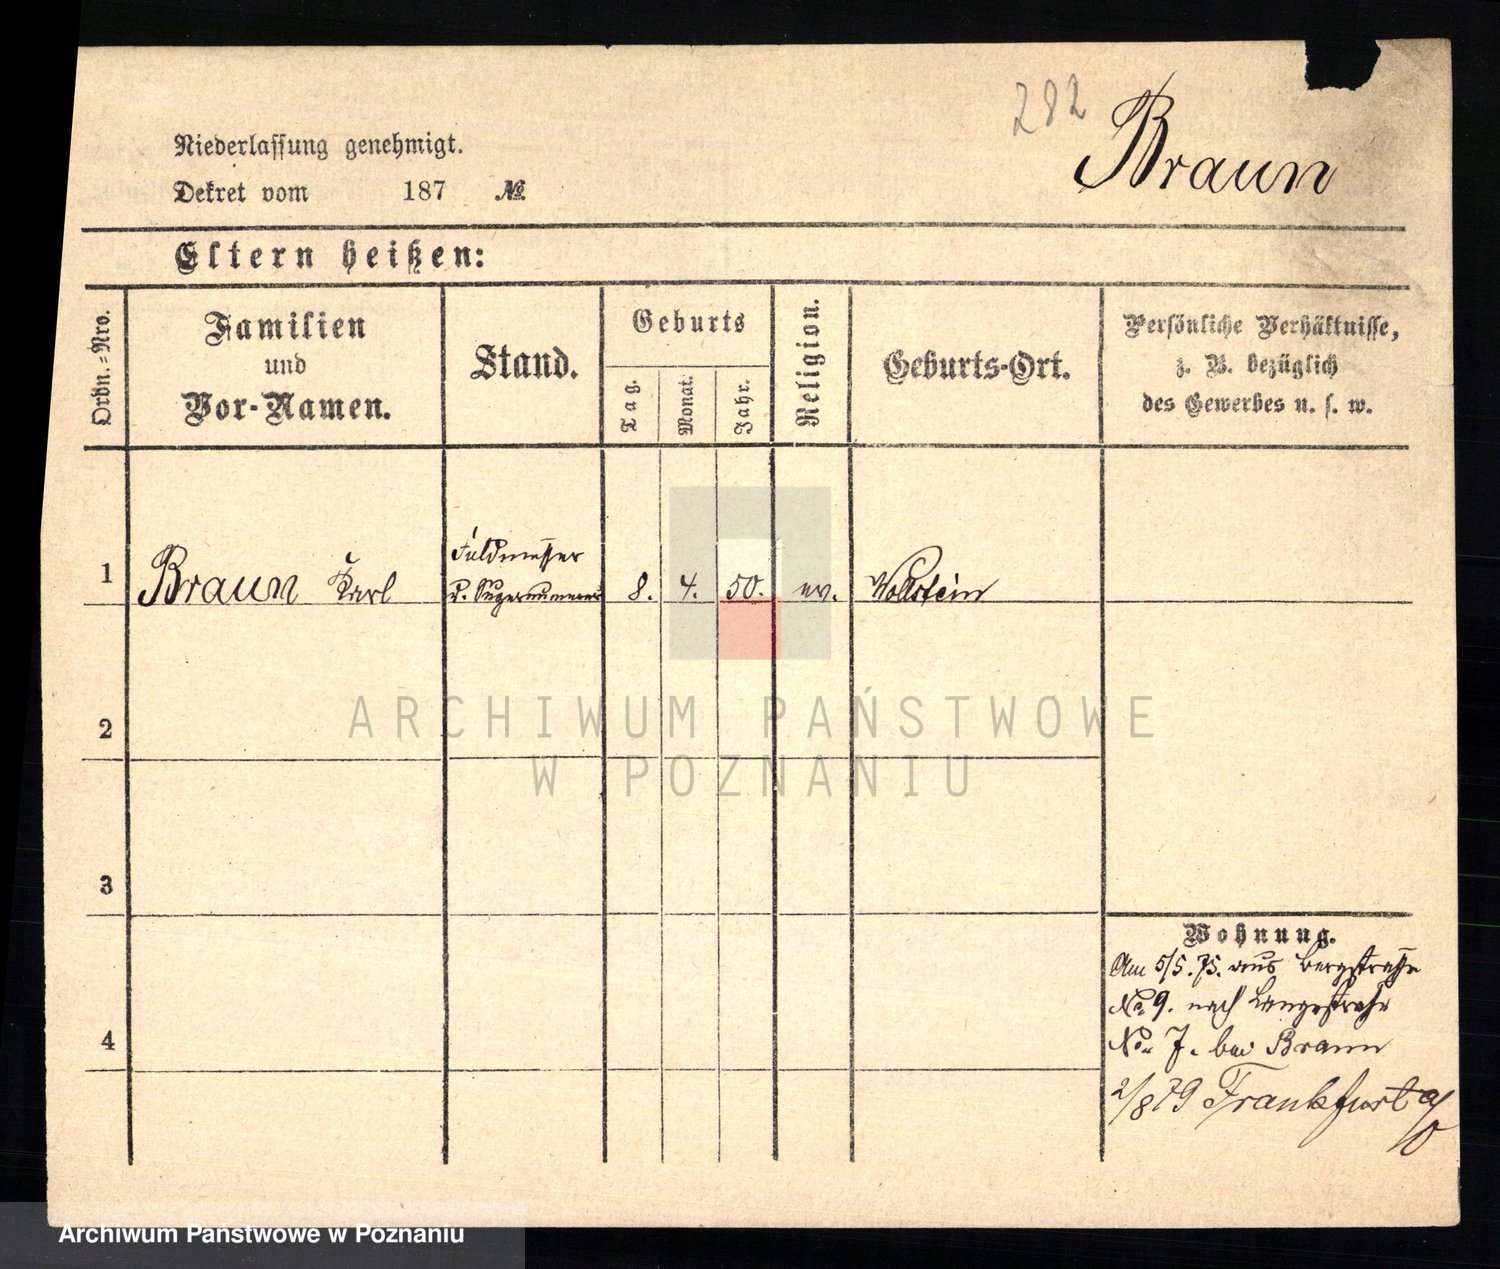 282
Braun
Niederlassung genehmigt.
Dekret vom 187 №
Eltern heißen:
Ordn.-Nro.
Familien
und
Vor-Namen.
Stand.
Geburts
Tag.
Monat.
Jahr.
Religion.
Geburts-Ort.
Persönliche Verhältnisse,
z. B. bezüglich
des Gewerbes u. s. w.
Feldmesser
1 Braun Karl u. Supernumerar 8. 4. 50. ev. Wollstein
2
3
4
Wohnung.
Am 5/5. 75. aus Bergstraße
No 9. nach Langestraße
No. 7. bei Braun
2/8 79 Frankfurt a/O
ARCHIWUM PAŃSTWOWE
W POZNANIU
Archiwum Państwowe w Poznaniu